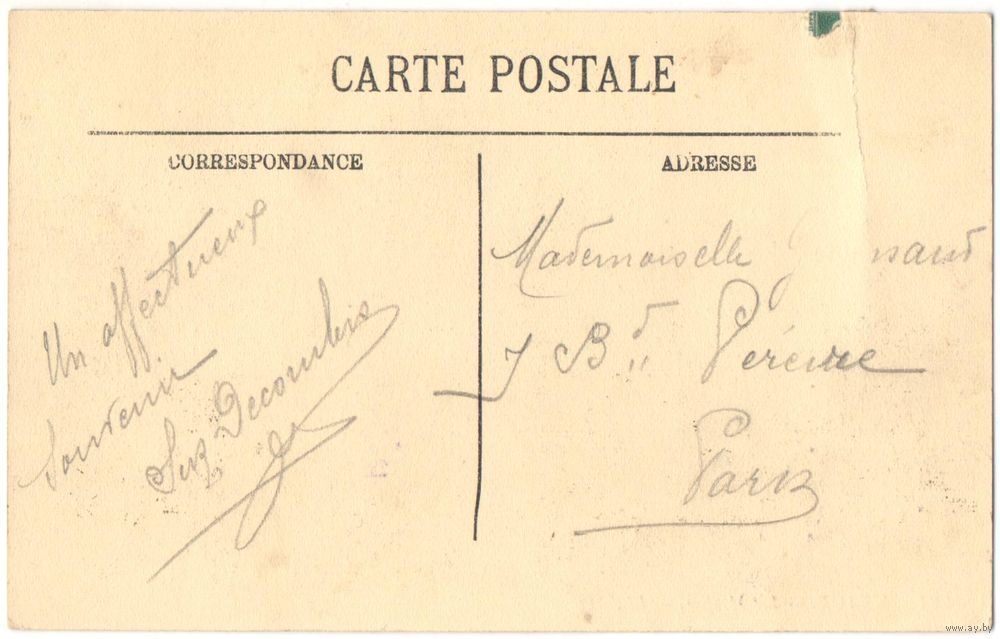 CARTE POSTALE
CORRESPONDANCE
Un affectueux
Souvenir
Suz Decombis
ADRESSE
Mademoiselle
7 Bd Pereire
Paris
www.ay.by